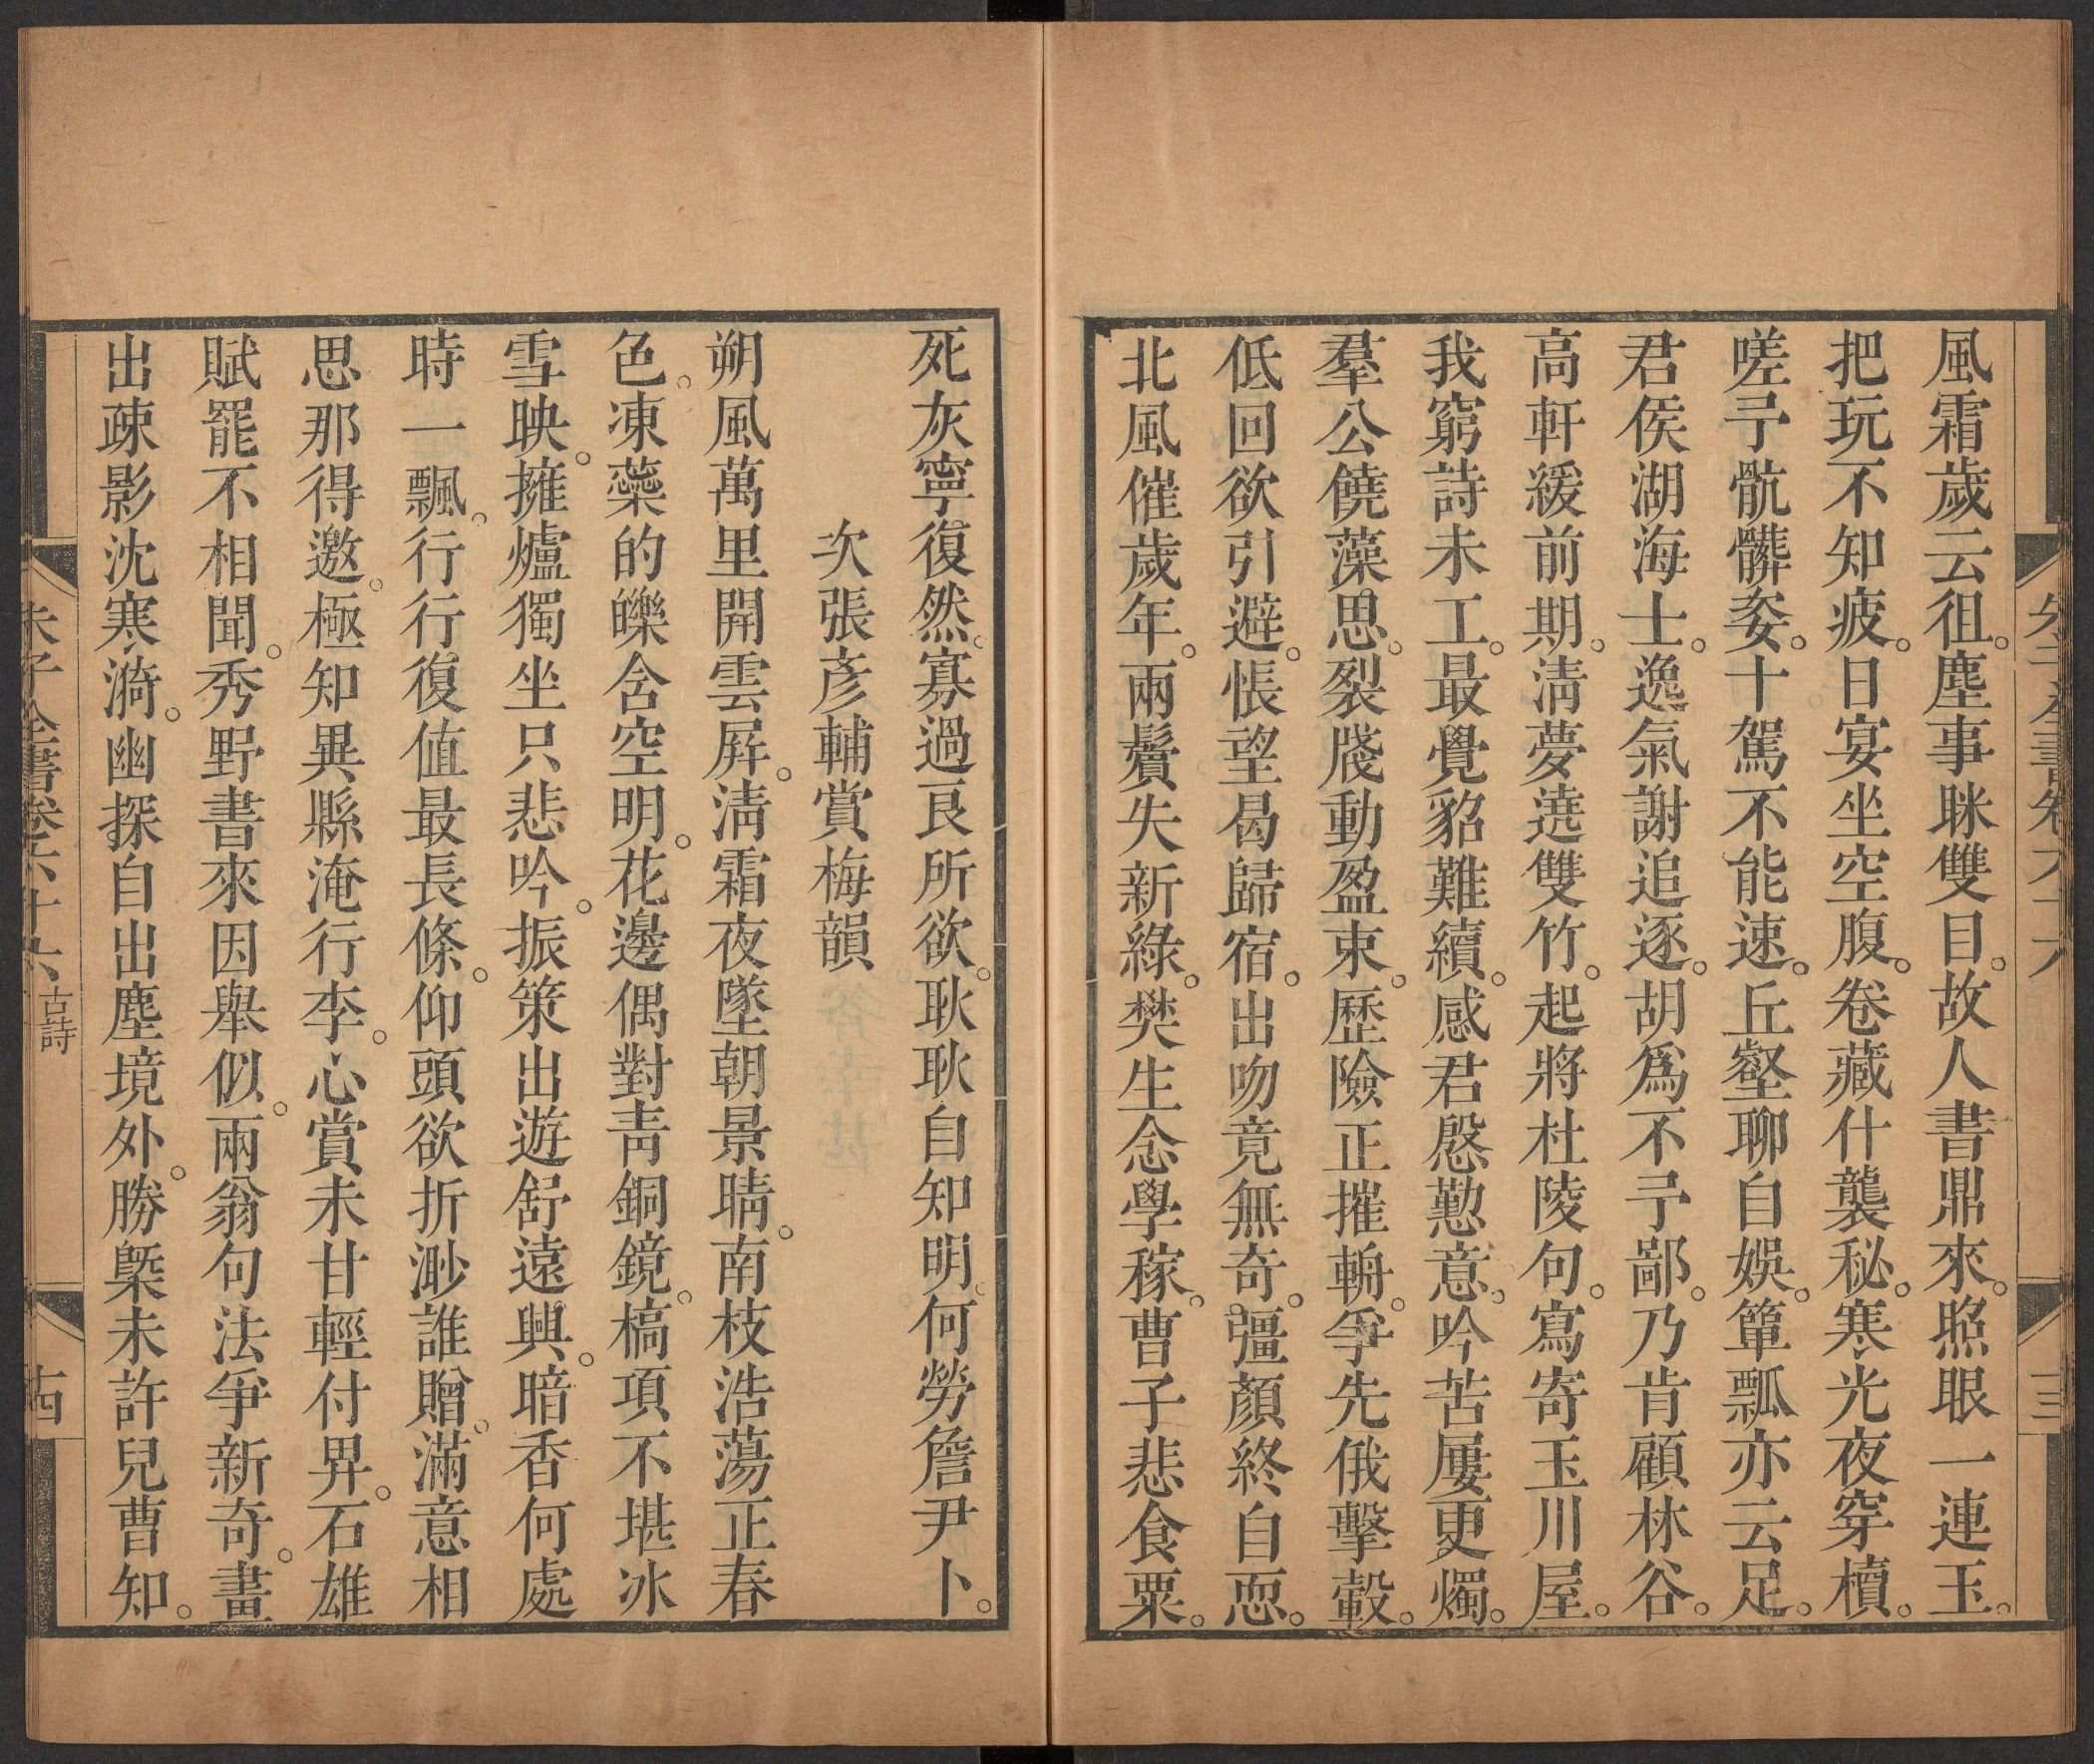 風霜歲云徂。塵事眯雙目。故人書鼎來。照眼一連玉。
把玩不知疲。日宴坐空腹。卷藏什襲秘。寒光夜穿櫝。
嗟予骯髒姿。十駕不能速。丘壑聊自娛。簞瓢亦云足。
君侯湖海士。逸氣謝追逐。胡爲不予鄙。乃肯顧林谷。
高軒緩前期。淸夢遶雙竹。起將杜陵句。寫寄玉川屋。
我窮詩未工。最覺貂難續。感君慇懃意。吟苦屢更燭。
羣公饒藻思。裂牋動盈束。歷險正摧輈。爭先俄擊轂。
低回欲引避。悵望曷歸宿。出吻竟無奇。彊顏終自恧。
北風催歲年。兩鬢失新綠。樊生念學稼。曹子悲食粟。
死灰寧復然。寡過艮所欲。耿耿自知明。何勞詹尹卜。
次張彥輔賞梅韻
朔風萬里開雲屛。淸霜夜墜朝景晴。南枝浩蕩正春
色。凍蘂的皪含空明。花邊偶對靑銅鏡。槁項不堪冰
雪映。擁爐獨坐只悲吟。振策出遊舒遠興。暗香何處
時一飄。行行復值最長條。仰頭欲折渺誰贈。滿意相
思那得邀。極知異縣淹行李。心賞未甘輕付畀。石雄
賦罷不相聞。秀野書來因舉似。兩翁句法爭新奇。畫
出疎影沈寒漪。幽探自出塵境外。勝槩未許兒曹知。
朱子全書卷六十六 古詩
十四